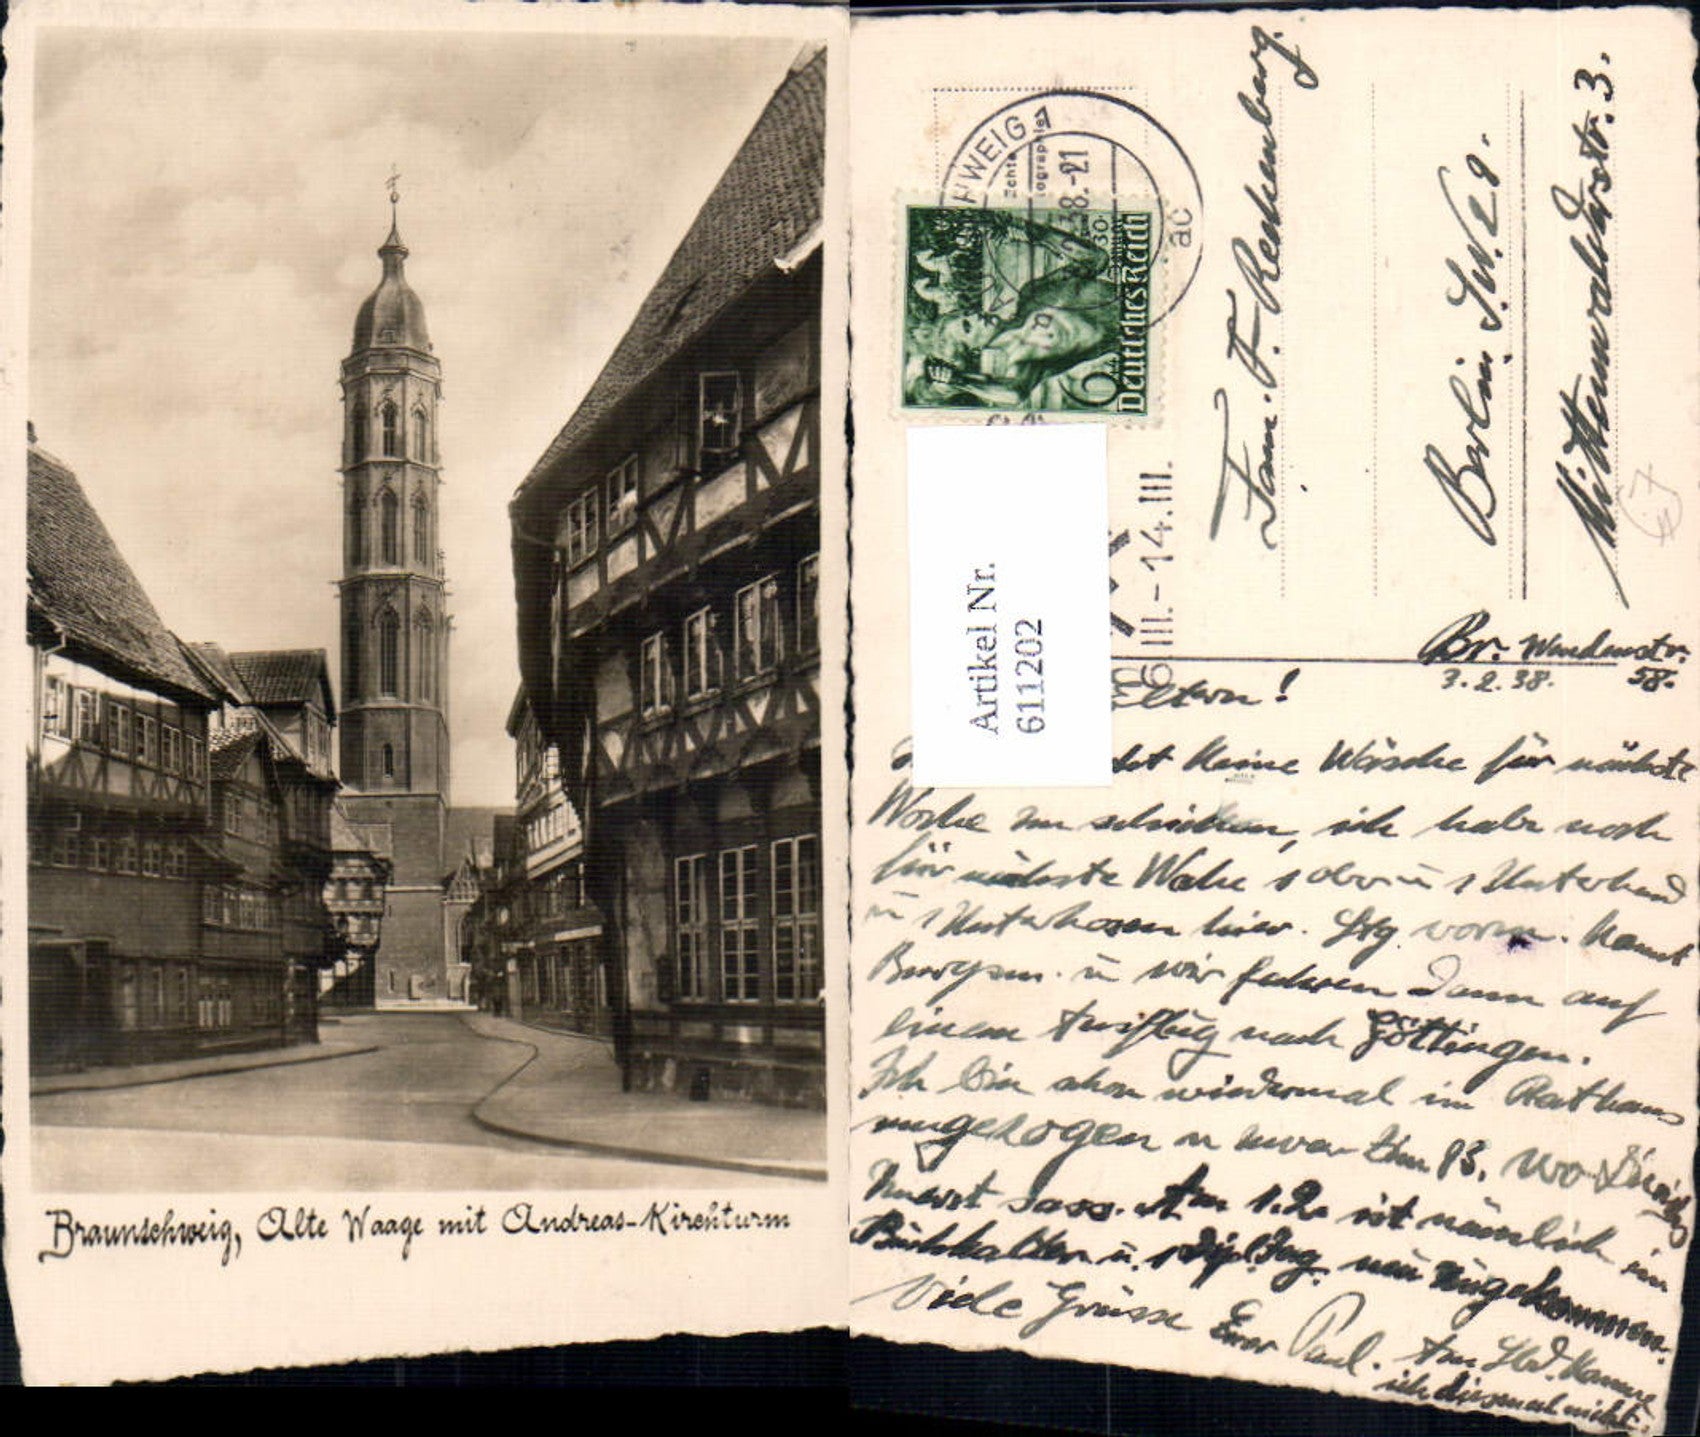 Braunschweig, Alte Waage mit Andreas-Kirchturm
HWEIG 1
Echte
38.-21
ac
6
Deutsches Reich
6.III.-14.III.
Artikel Nr.
611202
Fam. F. Rechenberg.
Berlin S.W. 29.
Mittenwalderstr. 3.
Br. Wendenstr.
3.2.38. 58.
Eltern!
keine Wäsche für nächste
Woche zu schicken, ich habe noch
für nächste Woche 1 u 1 Unterhemd
u 1 Unterhosen hier. Stg. vorm. kommt
u wir fahren dann auf
einem Ausflug nach Göttingen.
Ich bin schon wiedermal im Rathaus
umgezogen u zwar Zim 83, wo
zuerst sass. Am 1.2. ist nämlich ein
Buchhalter u. 1 Dipl. Ing. neu zugekommen.
Viele Grüsse Euer Paul. Am komme
ich diesmal nicht.